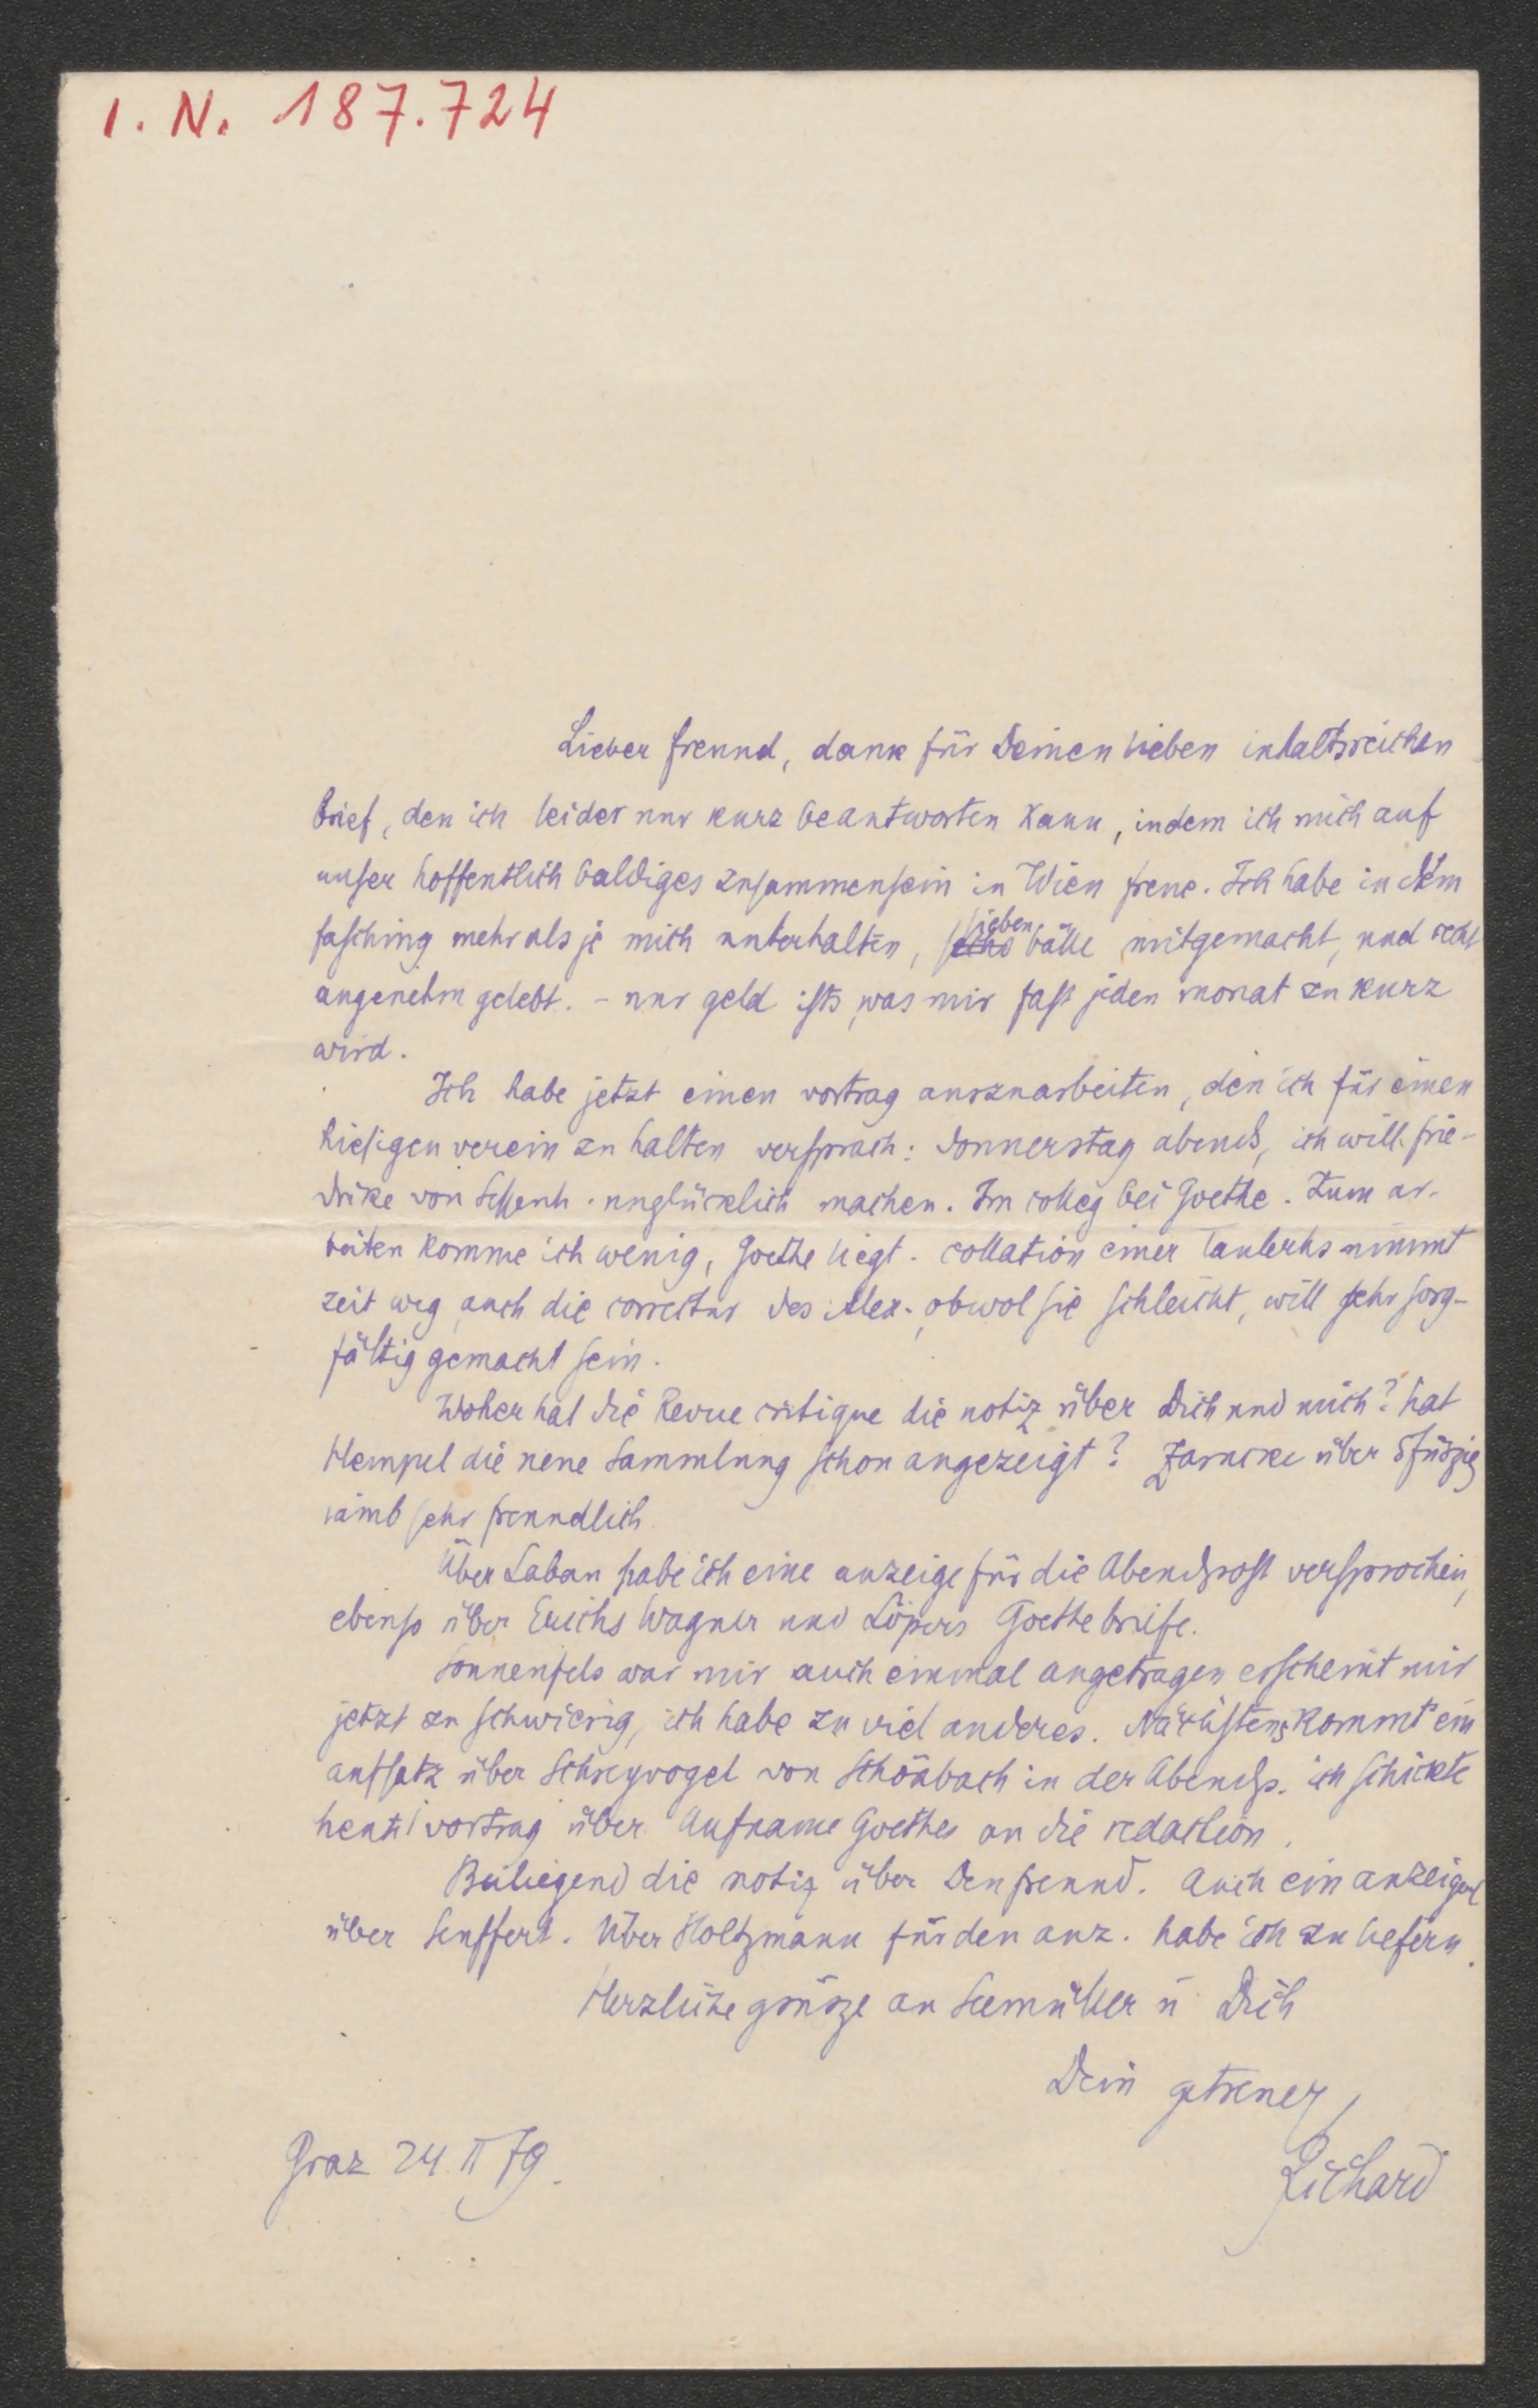 I. N. 187.724
Lieber freund, dank für Deinen lieben inhaltsreichen
brief, den ich leider nur kurz beantworten kann, indem ich mich auf
unser hoffentlich baldiges zusammensein in Wien freue. Ich habe in dem
fasching mehr als je mich unterhalten, sieben bälle mitgemacht, und recht
angenehm gelebt. – nur geld ists, was mir fast jeden monat zu kurz
wird.
Ich habe jetzt einen vortrag auszuarbeiten, den ich für einen
hiesigen verein zu halten versprach: Donnerstag abends, ich will frie-
drike von Sessenh. unglücklich machen. Im colleg bei Goethe. Zum ar-
beiten komme ich wenig, Goethe liegt. collation einer Taulerhs nimmt
zeit weg, auch die correctur des Alex., obwol sie schleicht, will sehr sorg-
fältig gemacht sein.
Woher hat die Revue critique die notiz über Dich und mich? hat
Hempel die neue Sammlung schon angezeigt? Zarncke über 5füszig
iamb sehr freundlich
Über Laban habe ich eine anzeige für die Abendpost versprochen,
ebenso über Erichs Wagner und Löpers Goethebriefe.
Sonnenfels war mir auch einmal angetragen erscheint mir
jetzt zu schwierig, ich habe zu viel anderes. Nächstens kommt ein
aufsatz über Schreyvogel von Schönbach in der Abendp. ich schickte
heute vortrag über Aufname Goethes an die redaction.
Beiliegend die notiz über Den freund. Auch ein anzeigerl
über Seuffert. Über Holtzmann für den anz. habe ich zu liefern.
Herzliche grüsze an Seemüller u Dich
Dein getreuer
Richard
Graz 24 II 79.